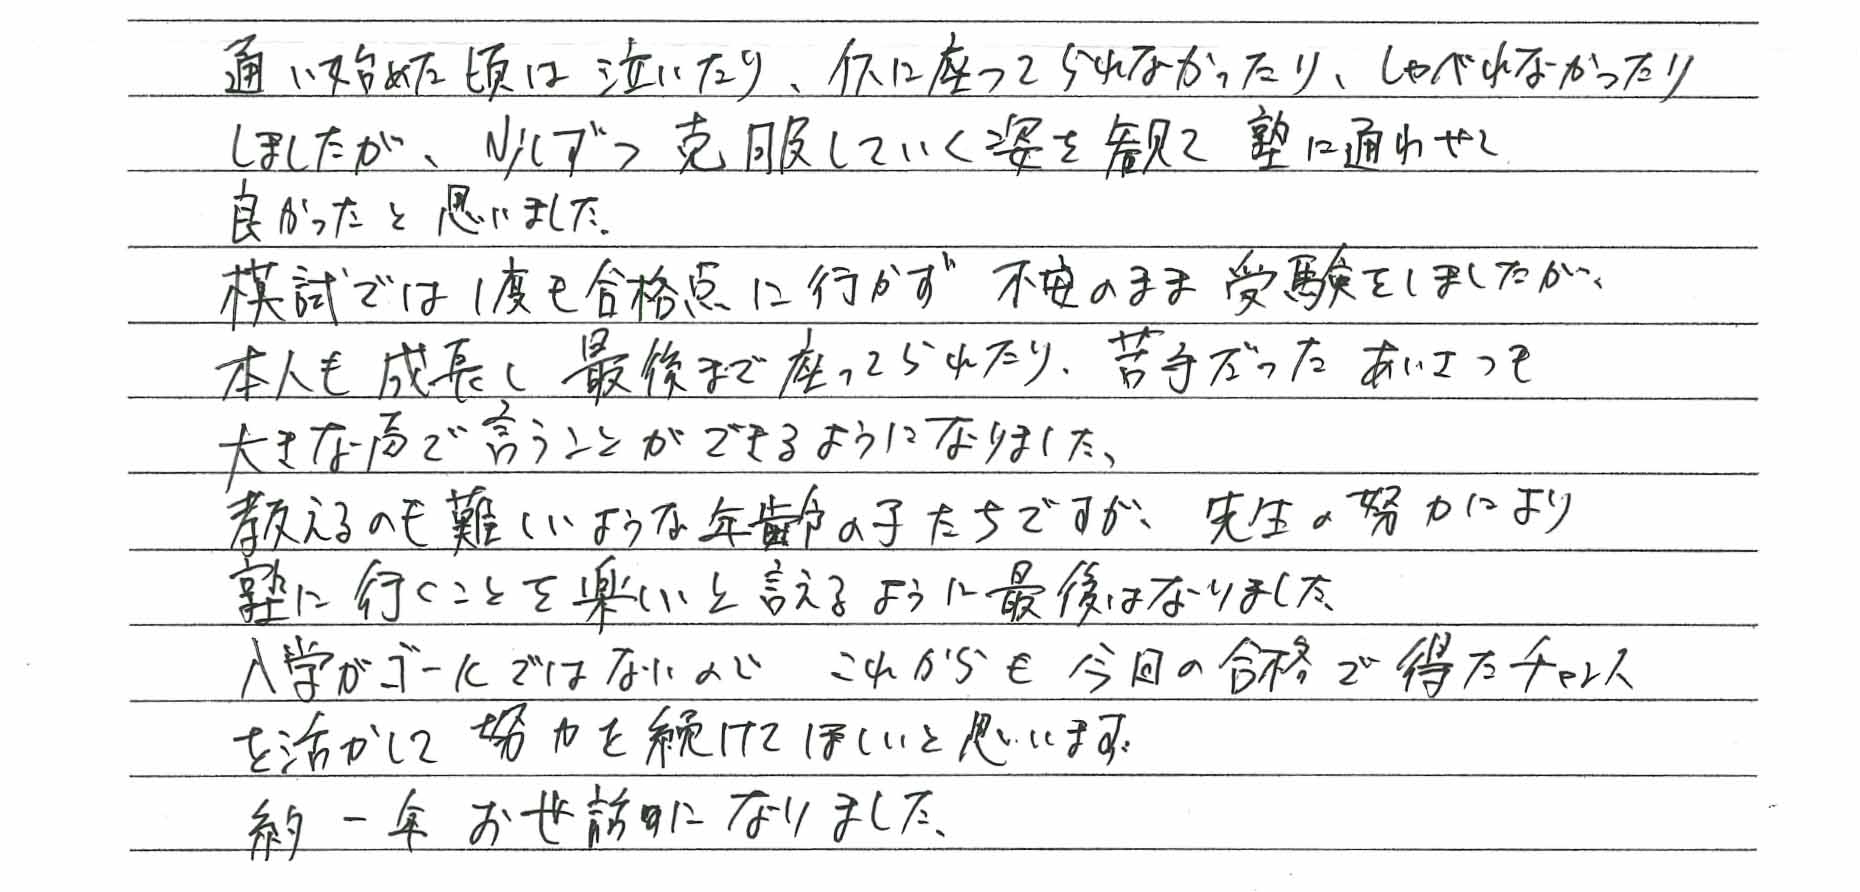 通い始めた頃は泣いたり、イスに座ってられなかったり、しゃべれなかったり
しましたが、少しずつ克服していく姿を観て塾に通わせて
良かったと思いました。
模試では1度も合格点に行かず不安のまま受験をしましたが、
本人も成長し最後まで座ってられたり、苦手だったあいさつも
大きな声で言うことができるようになりました、
教えるのも難しいような年齢の子たちですが、先生の努力により
塾に行くことを楽しいと言えるように最後はなりました、
入学がゴールではないので これからも今回の合格で得たチャンス
を活かして努力を続けてほしいと思います。
約一年お世話になりました、